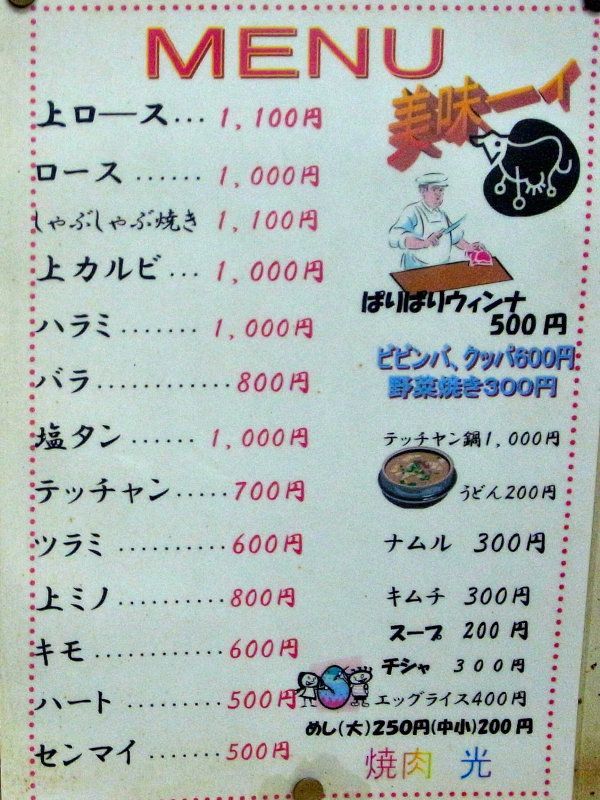 MENU
上ロース... 1,100円
ロース...... 1,000円
しゃぶしゃぶ焼き 1,100円
上カルビ... 1,000円
ハラミ....... 1,000円
バラ............ 800円
塩タン...... 1,000円
テッチャン..... 700円
ツラミ.......... 600円
上ミノ.......... 800円
キモ............ 600円
ハート......... 500円
センマイ....... 500円
美味ーイ
ぱりぱりウィンナ
500円
ビビンバ、クッパ600円
野菜焼き300円
テッチャン鍋1,000円
うどん200円
ナムル 300円
キムチ 300円
スープ 200円
チシャ 300円
エッグライス400円
めし(大)250円(中小)200円
焼肉 光